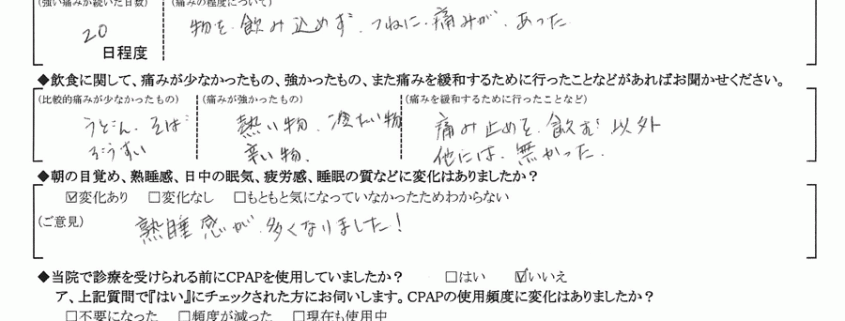 (強い痛みが続いた日数)
(痛みの程度について)
20
日程度
物を飲み込めず、つねに痛みが、あった
◆飲食に関して、痛みが少なかったもの、強かったもの、また痛みを緩和するために行ったことなどがあればお聞かせください。
(比較的痛みが少なかったもの)
うどん、そば
ぞうすい
(痛みが強かったもの)
熱い物、冷たい物
辛い物、
(痛みを緩和するために行ったことなど)
痛み止めを、飲む以外
他には、無かった、
◆朝の目覚め、熟睡感、日中の眠気、疲労感、睡眠の質などに変化はありましたか？
☑変化あり □変化なし □もともと気になっていなかったためわからない
(ご意見)
熟睡感が、多くなりました！
◆当院で診療を受けられる前にCPAPを使用していましたか？ □はい ☑いいえ
ア、上記質問で『はい』にチェックされた方にお伺いします。CPAPの使用頻度に変化はありましたか？
□不要になった □頻度が減った □現在も使用中